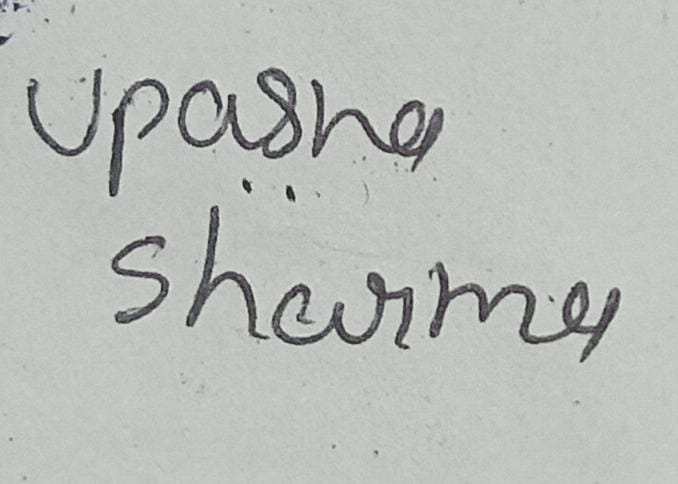 Upasna
Sharma